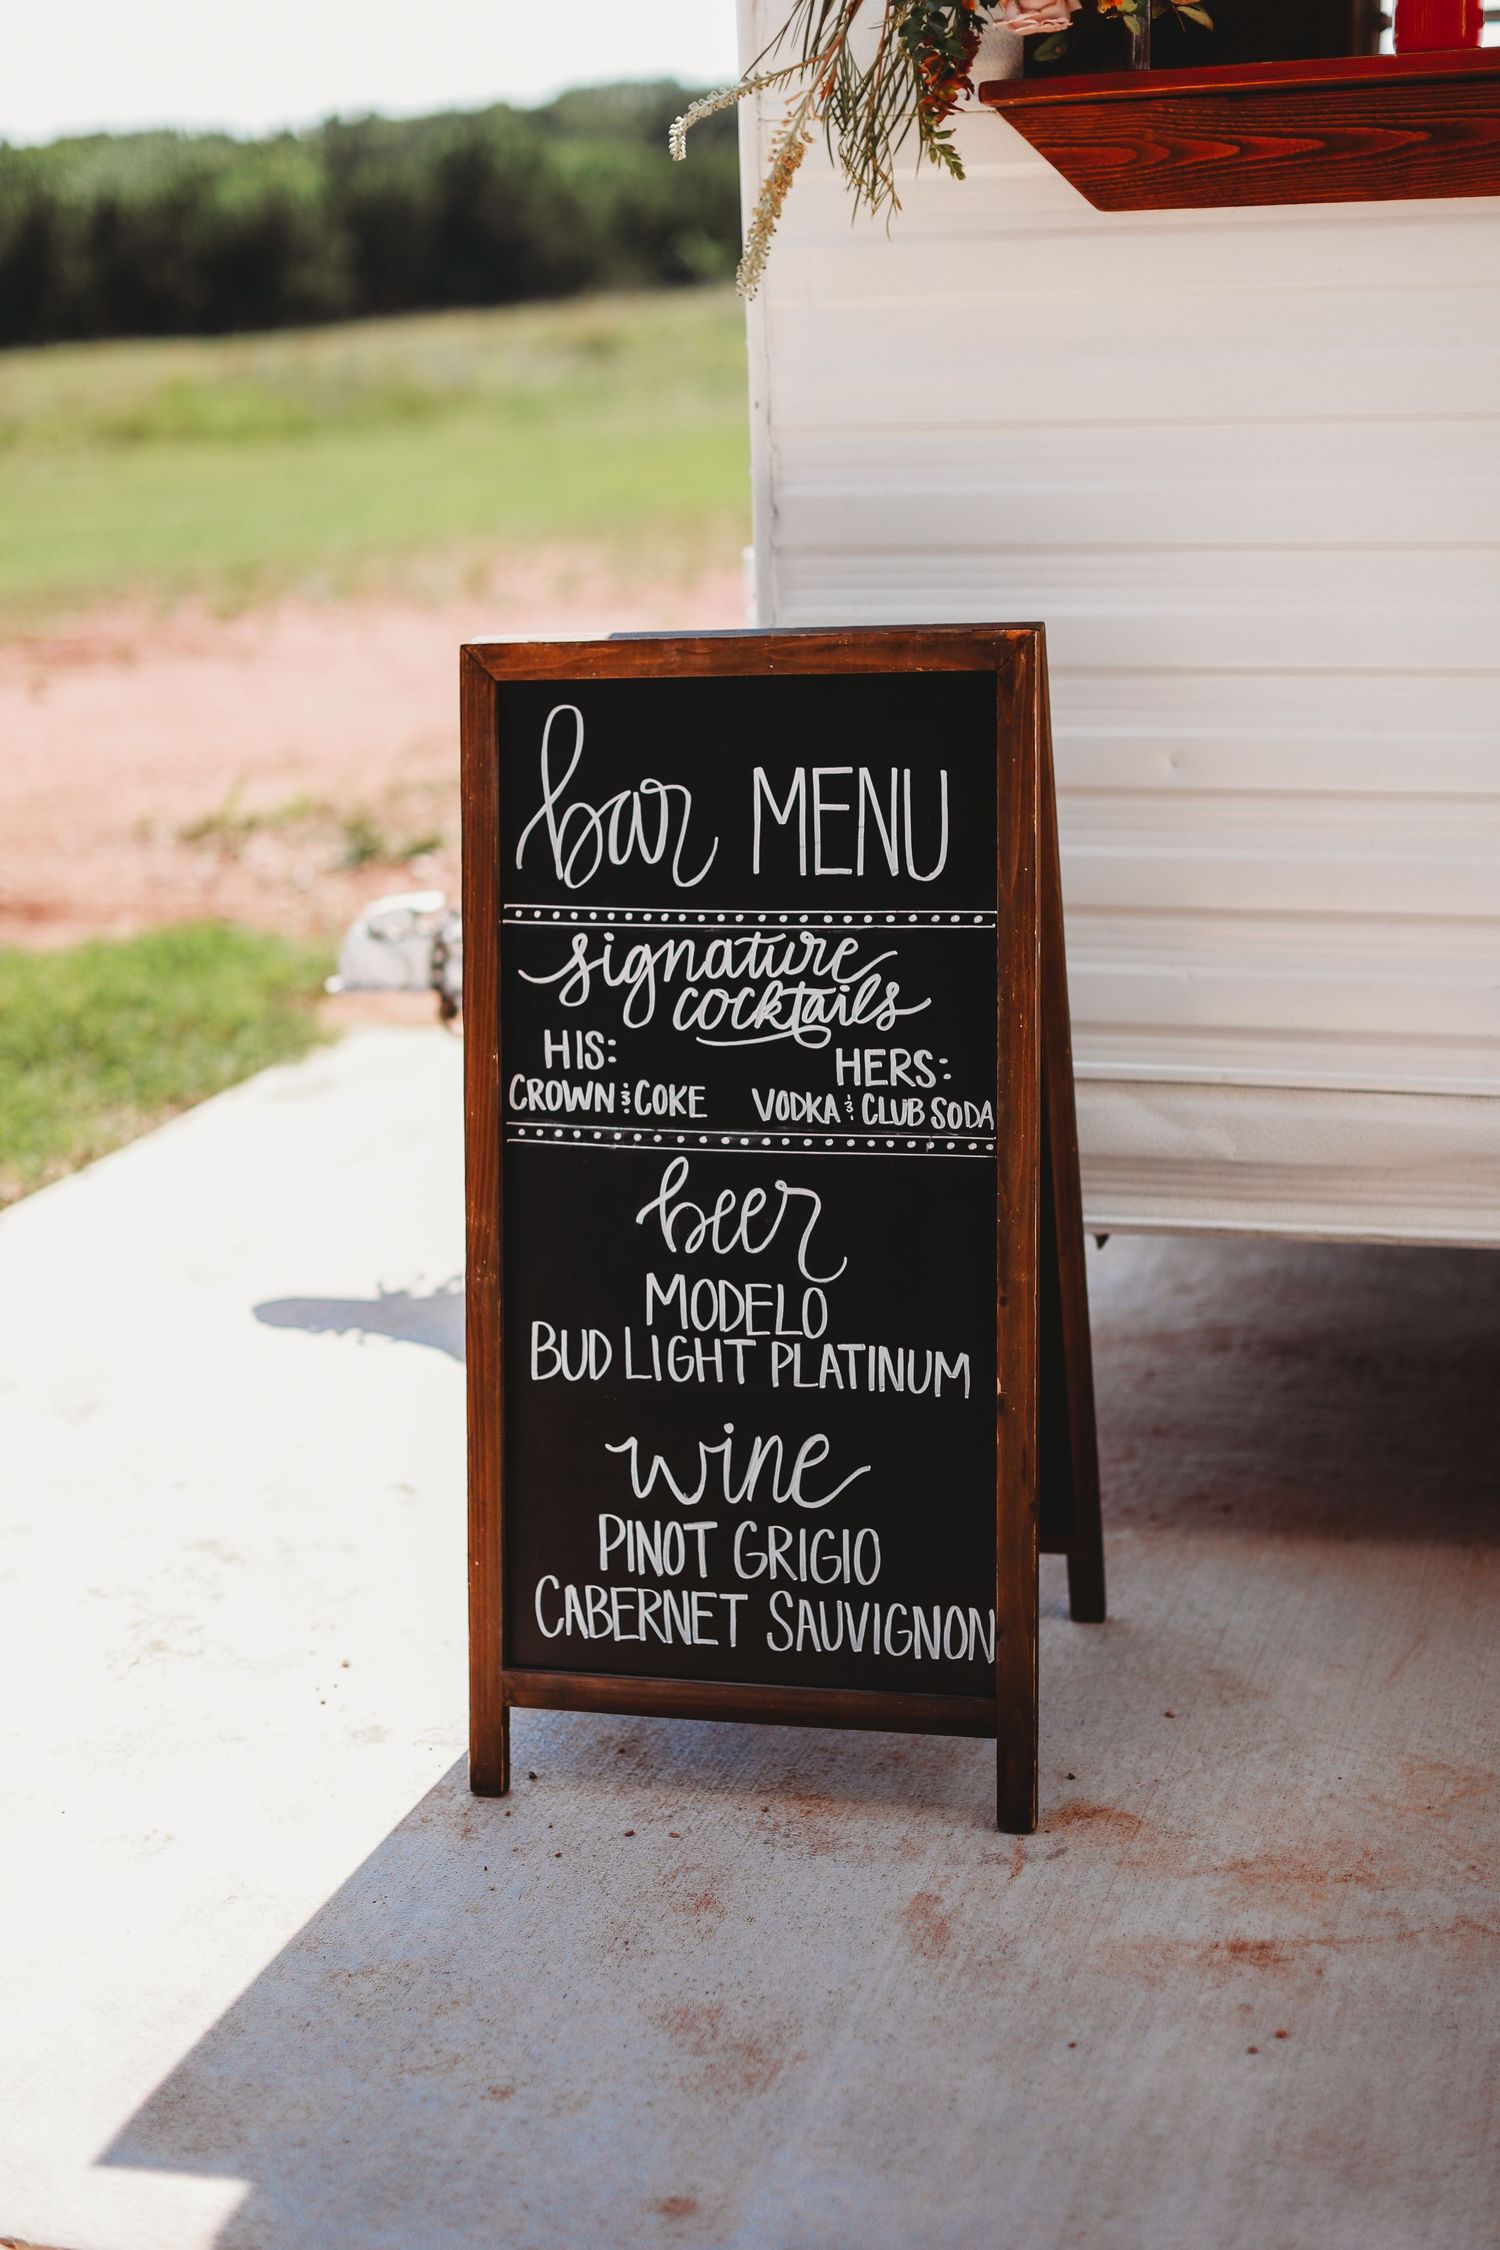 bar MENU
signature
cocktails
HIS:
CROWN & COKE
HERS:
VODKA & CLUB SODA
beer
MODELO
BUD LIGHT PLATINUM
wine
PINOT GRIGIO
CABERNET SAUVIGNON